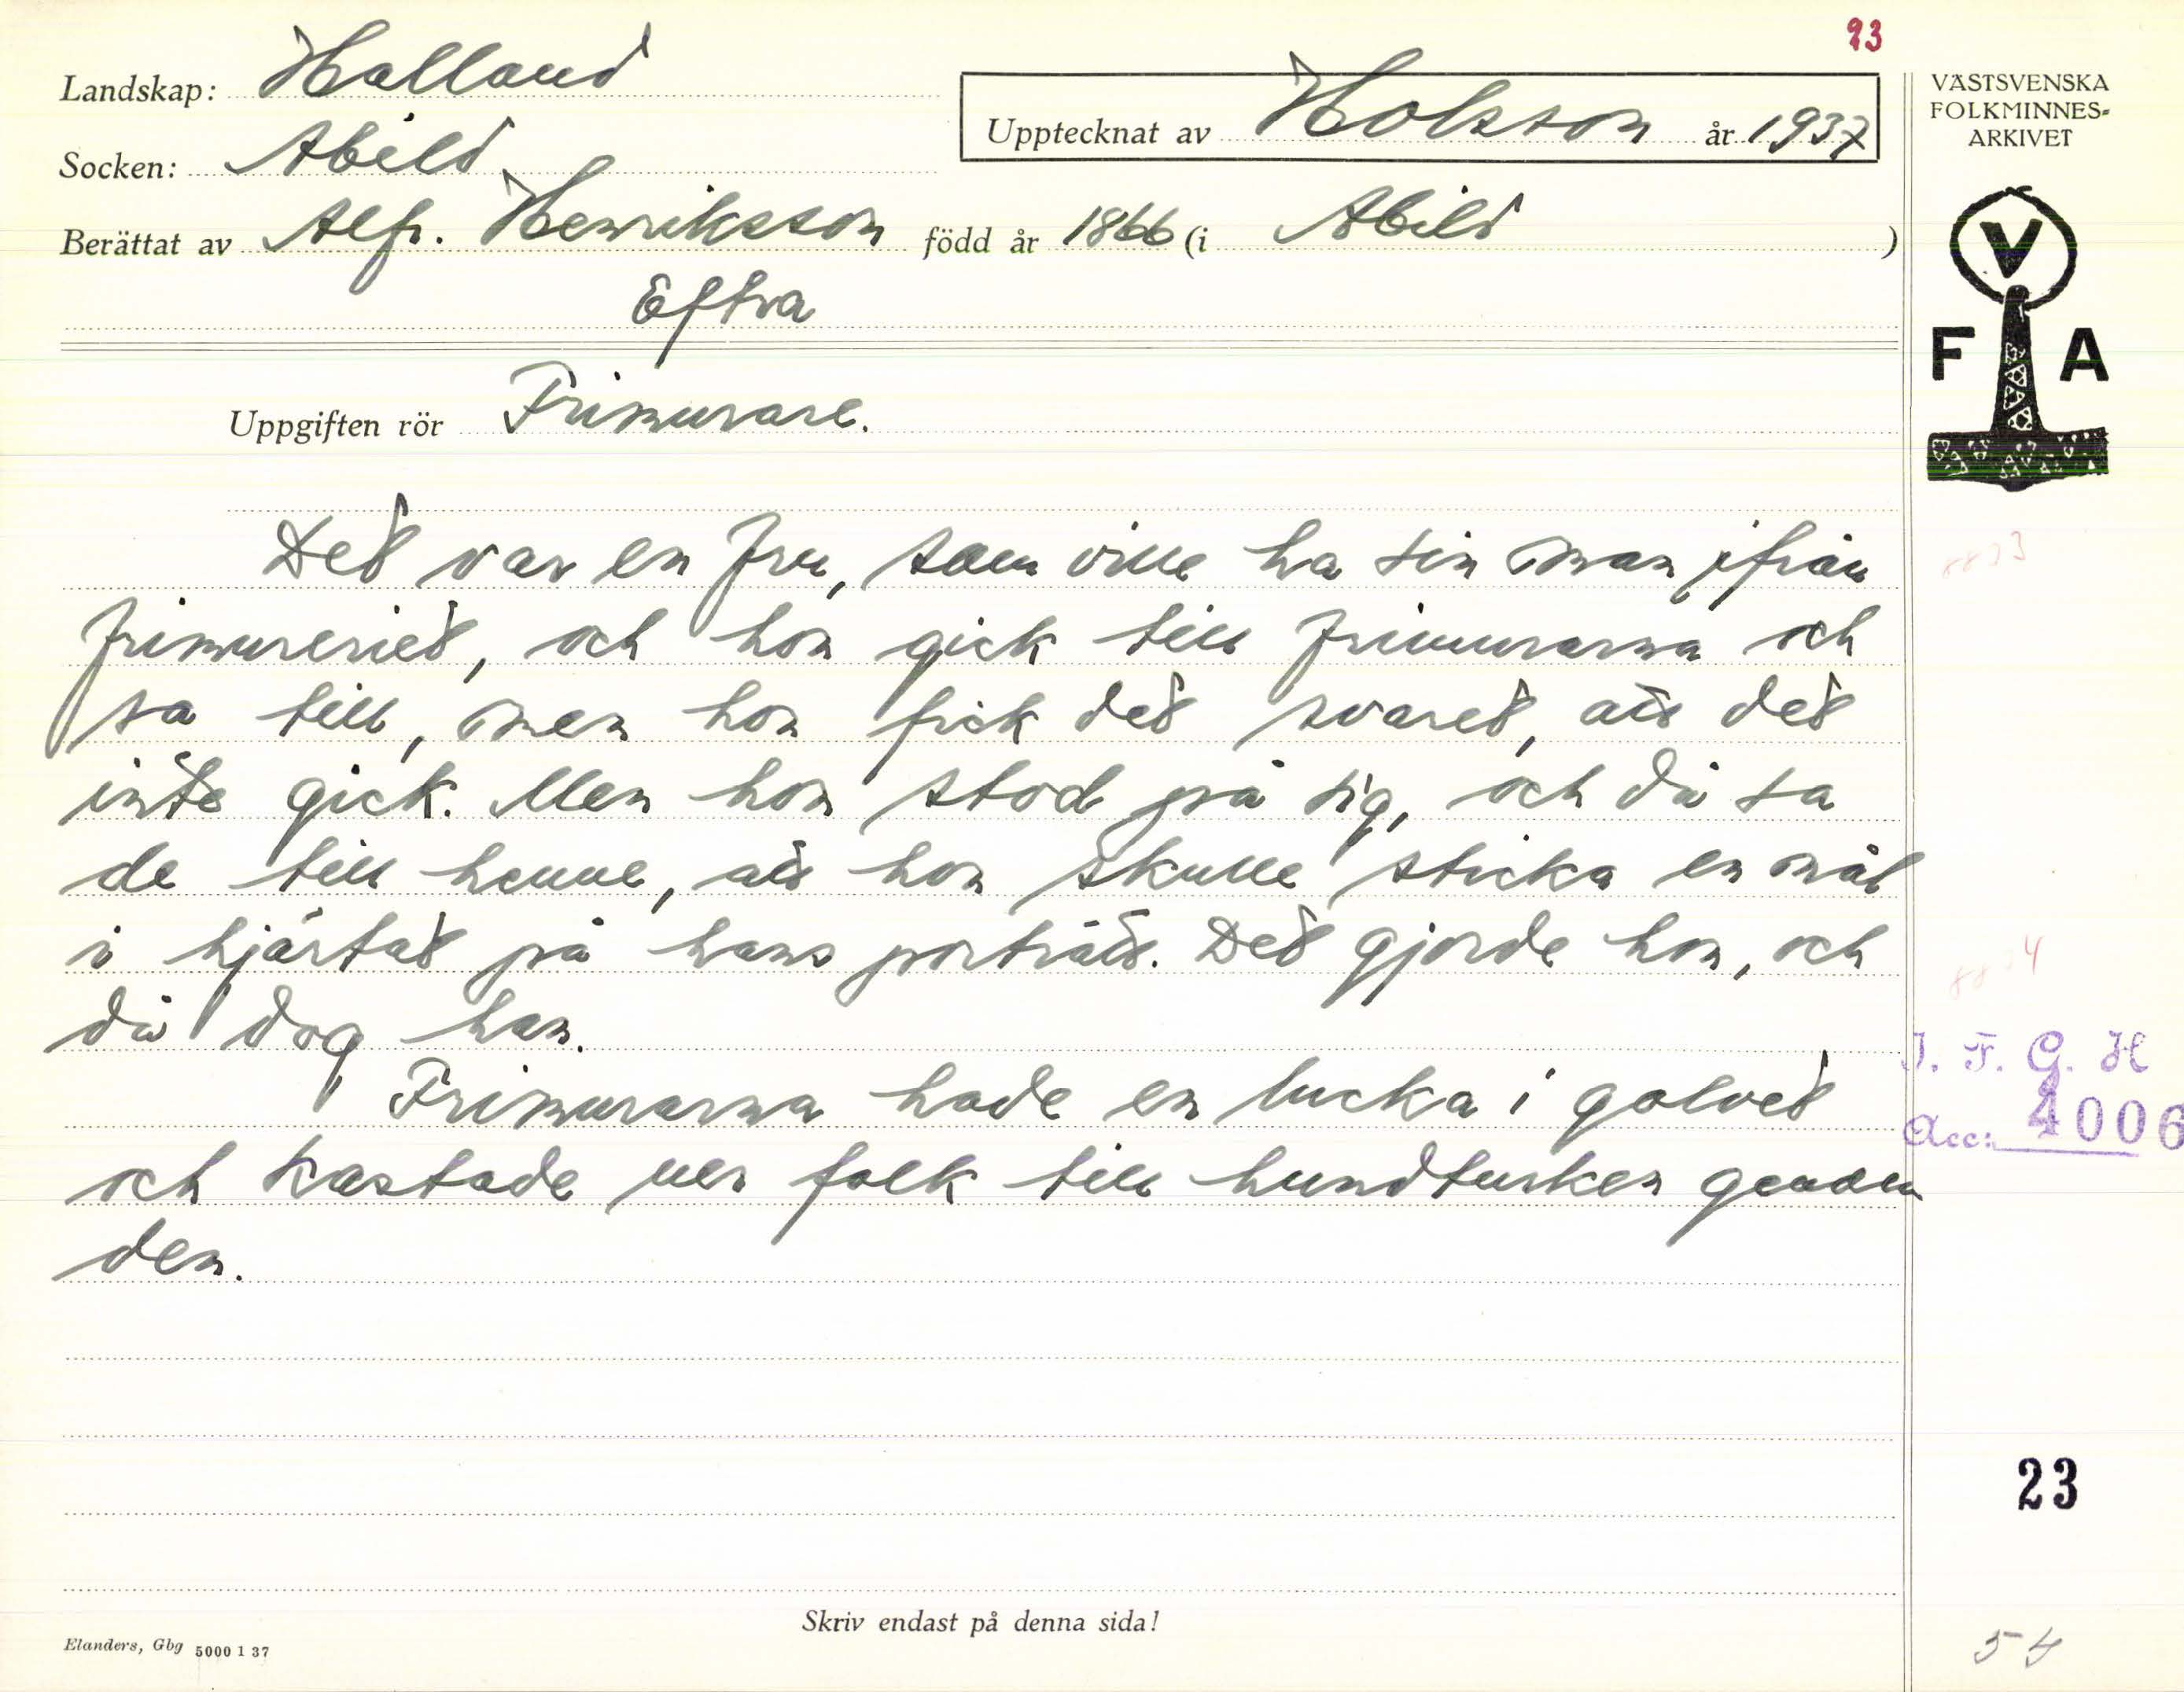 93
Landskap: Halland
Upptecknat av Holsson år 1937
VÄSTSVENSKA
FOLKMINNES-
ARKIVET
Socken: Abild
Berättat av Alfr. Henriksson född år 1866 (i Abild)
Eftra
V
F A
Uppgiften rör Frimurare.
Det var en fru, som ville ha sin man ifrån
frimureriet, och hon gick till frimurarna och
sa till, men hon fick det svaret, att det
inte gick. Men hon stod på sig, och då sa
de till henne, att hon skulle sticka en nål
i hjärtat på hans porträtt. Det gjorde hon, och
då dog han.
Frimurarna hade en lucka i golvet
och kastade ner folk till hundturken genom
den.
I. F. G. H
Acc: 4006
23
Skriv endast på denna sida!
Elanders, Gbg 5000 1 37
54